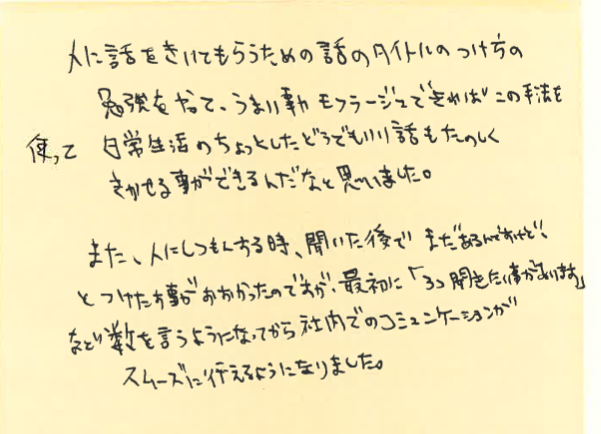 人に話をきいてもらうための話のタイトルのつけ方の
勉強をやって、うまい事カモフラージュできればこの手法を
使って 日常生活のちょっとしたどうでもいい話もたのしく
きかせる事ができるんだなと思いました。
また、人にしつもんする時、聞いた後で まだあるんですけど、
とつけたす事がおおかったのですが、最初に「3つ聞きたい事があります」
など数を言うようになってから社内でのコミュニケーションが
スムーズに行えるようになりました。